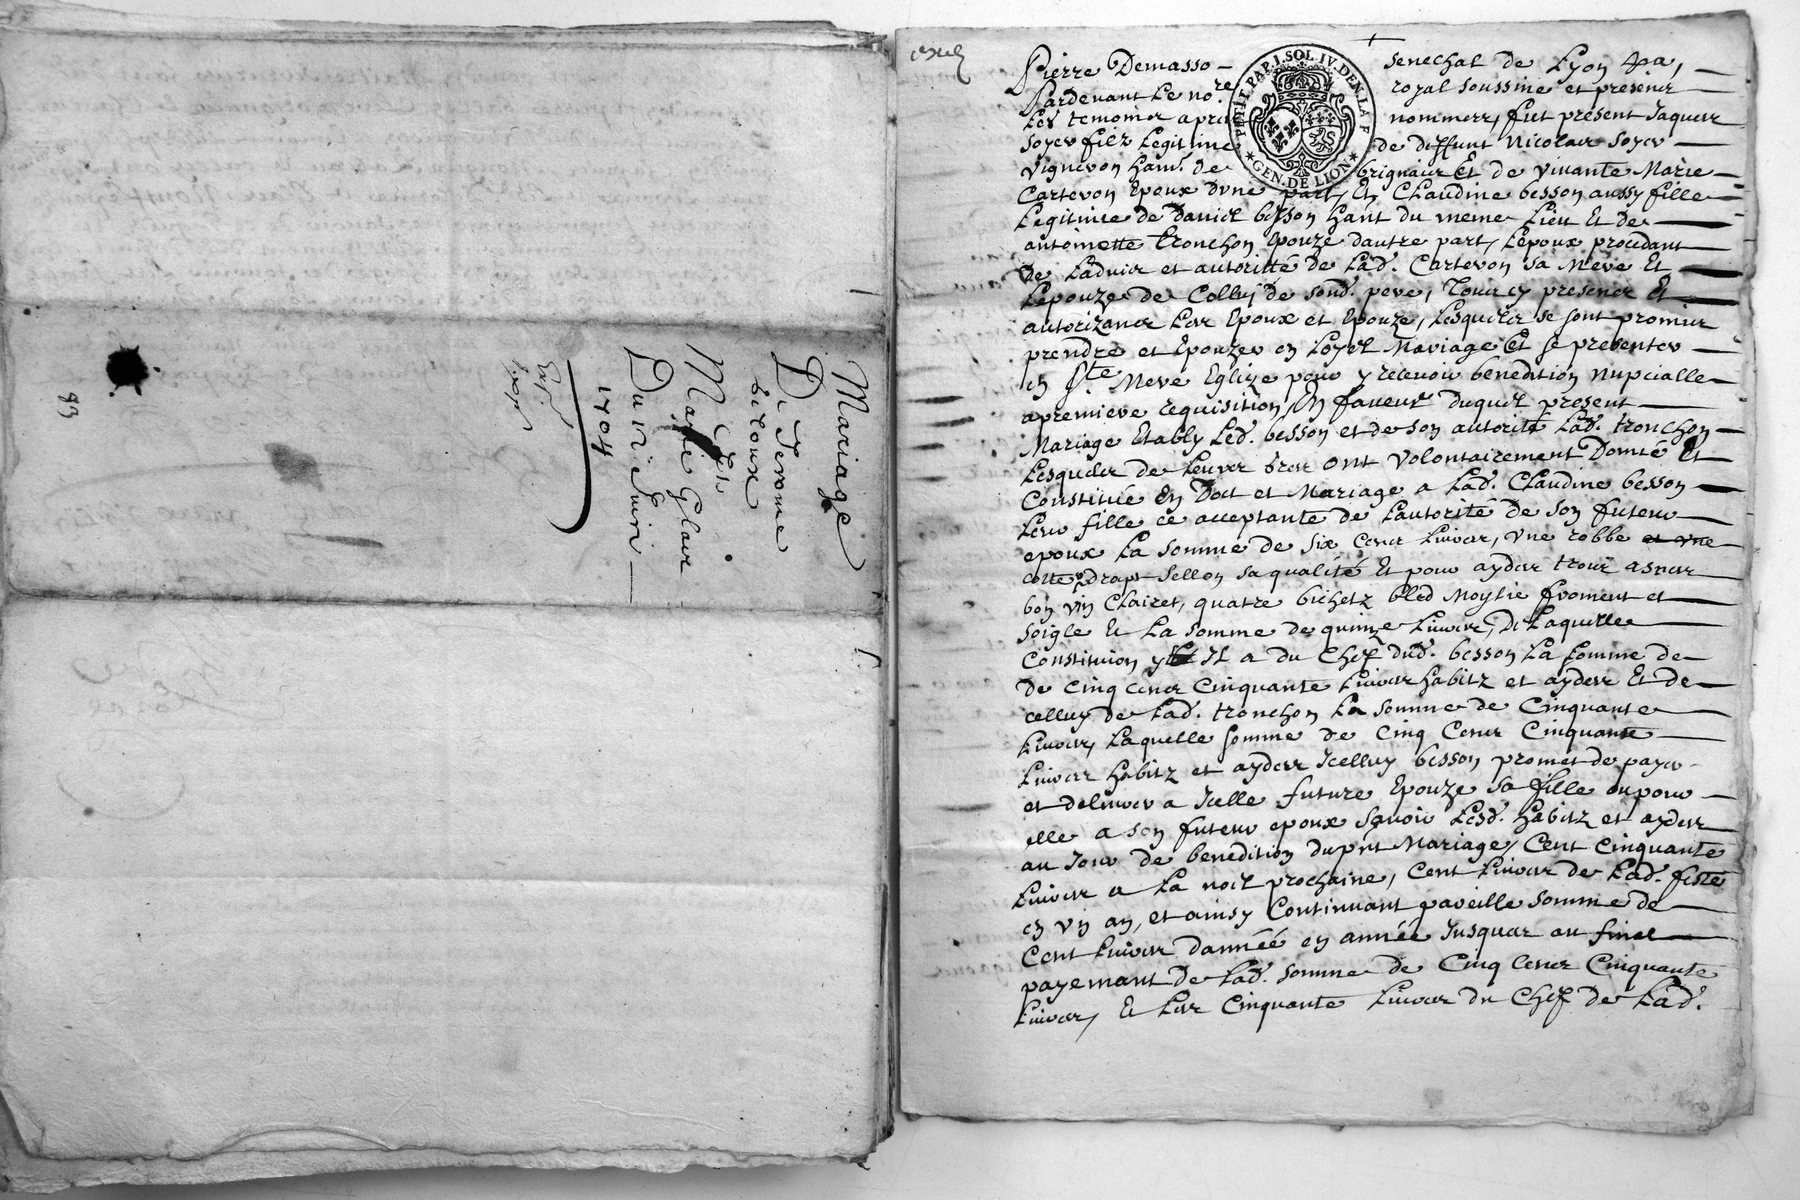 Mariage
De Jerome
Et
Marie Glair
Du 12e Juin
1704
83
Pierre Demasso senechal de Lyon
Pardevant Le nore royal soussiné et presens
Les temoins apres nommez, fut present Jaques
Soyer filz Legitime de deffunt Nicolas Soyer
Vigneron hant. de brignais Et de vivante Marie
Carteron Epoux dune part, Et Claudine besson aussy fille
Legitime de Daniel besson hant du meme Lieu Et de
antoinette tronchon Epouze dautre part, Lepoux procedant
De Ladvis et autoritté de Lad. Carteron sa Mere Et
Lepouze de Celluy de sond. pere, Tous cy presens Et
autorizans Les Epoux et Epouze, Lesquels se sont promis
prendre et Epouzer en Loyal Mariage Et se presenter
en Ste Mere Eglize pour y recevoir benedition nupcialle
a premiere requisition, En faveur duquel present
Mariage Etably Led. besson et de son autorité Lad. tronchon
Lesquels de Leurs grez ont volontairement Donné Et
Constitué En Dot et Mariage a Lad. Claudine besson
Leur fille ce acceptante de Lautorité de son futeur
epoux La somme de six cens Livres, une robbe et une
cotte drapt sellon sa qualité Et pour aydes trois asnées
bon vin Clairet, quatre bichetz bled Moytié froment et
soigle Et La somme de quinze Livres, De Laquelle
Constitution y Il a du Chef dud. besson La somme de
de cinq cens Cinquante Livres habitz et aydes Et de
celluy de Lad. tronchon La somme de Cinquante
Livres, Laquelle somme de Cinq Cens Cinquante
Livres habitz et aydes Icelluy besson promet de payer
et delivrer a Icelle future Epouze sa fille ou pour
elle a son futeur epoux savoir Lesd. habitz et aydes
au Jour de benedition du pnt Mariage, Cent Cinquante
Livres a La noel prochaine, Cent Livres de Lad. feste
en un an, et ainsy Continuant pareille somme de
Cent Livres dannéé en année Jusques au final
payemant de Lad. somme de Cinq Cens Cinquante
Livres, Et Les Cinquante Livres du Chef de Lad.
PETIT.PAP.I.SOL IV.DEN.LA F
GEN.DE LION